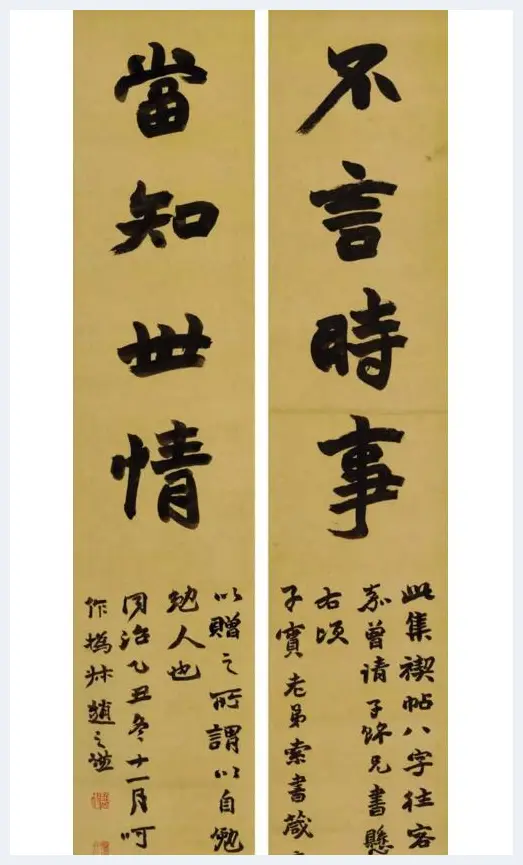 不言時事
此集禊帖八字往客
嘉曾請子餘兄書懸
右頃
子實老弟索書蔵
當知世情
以贈之所謂以自勉
勉人也
同治乙丑冬十一月呵
作撝叔趙之謙